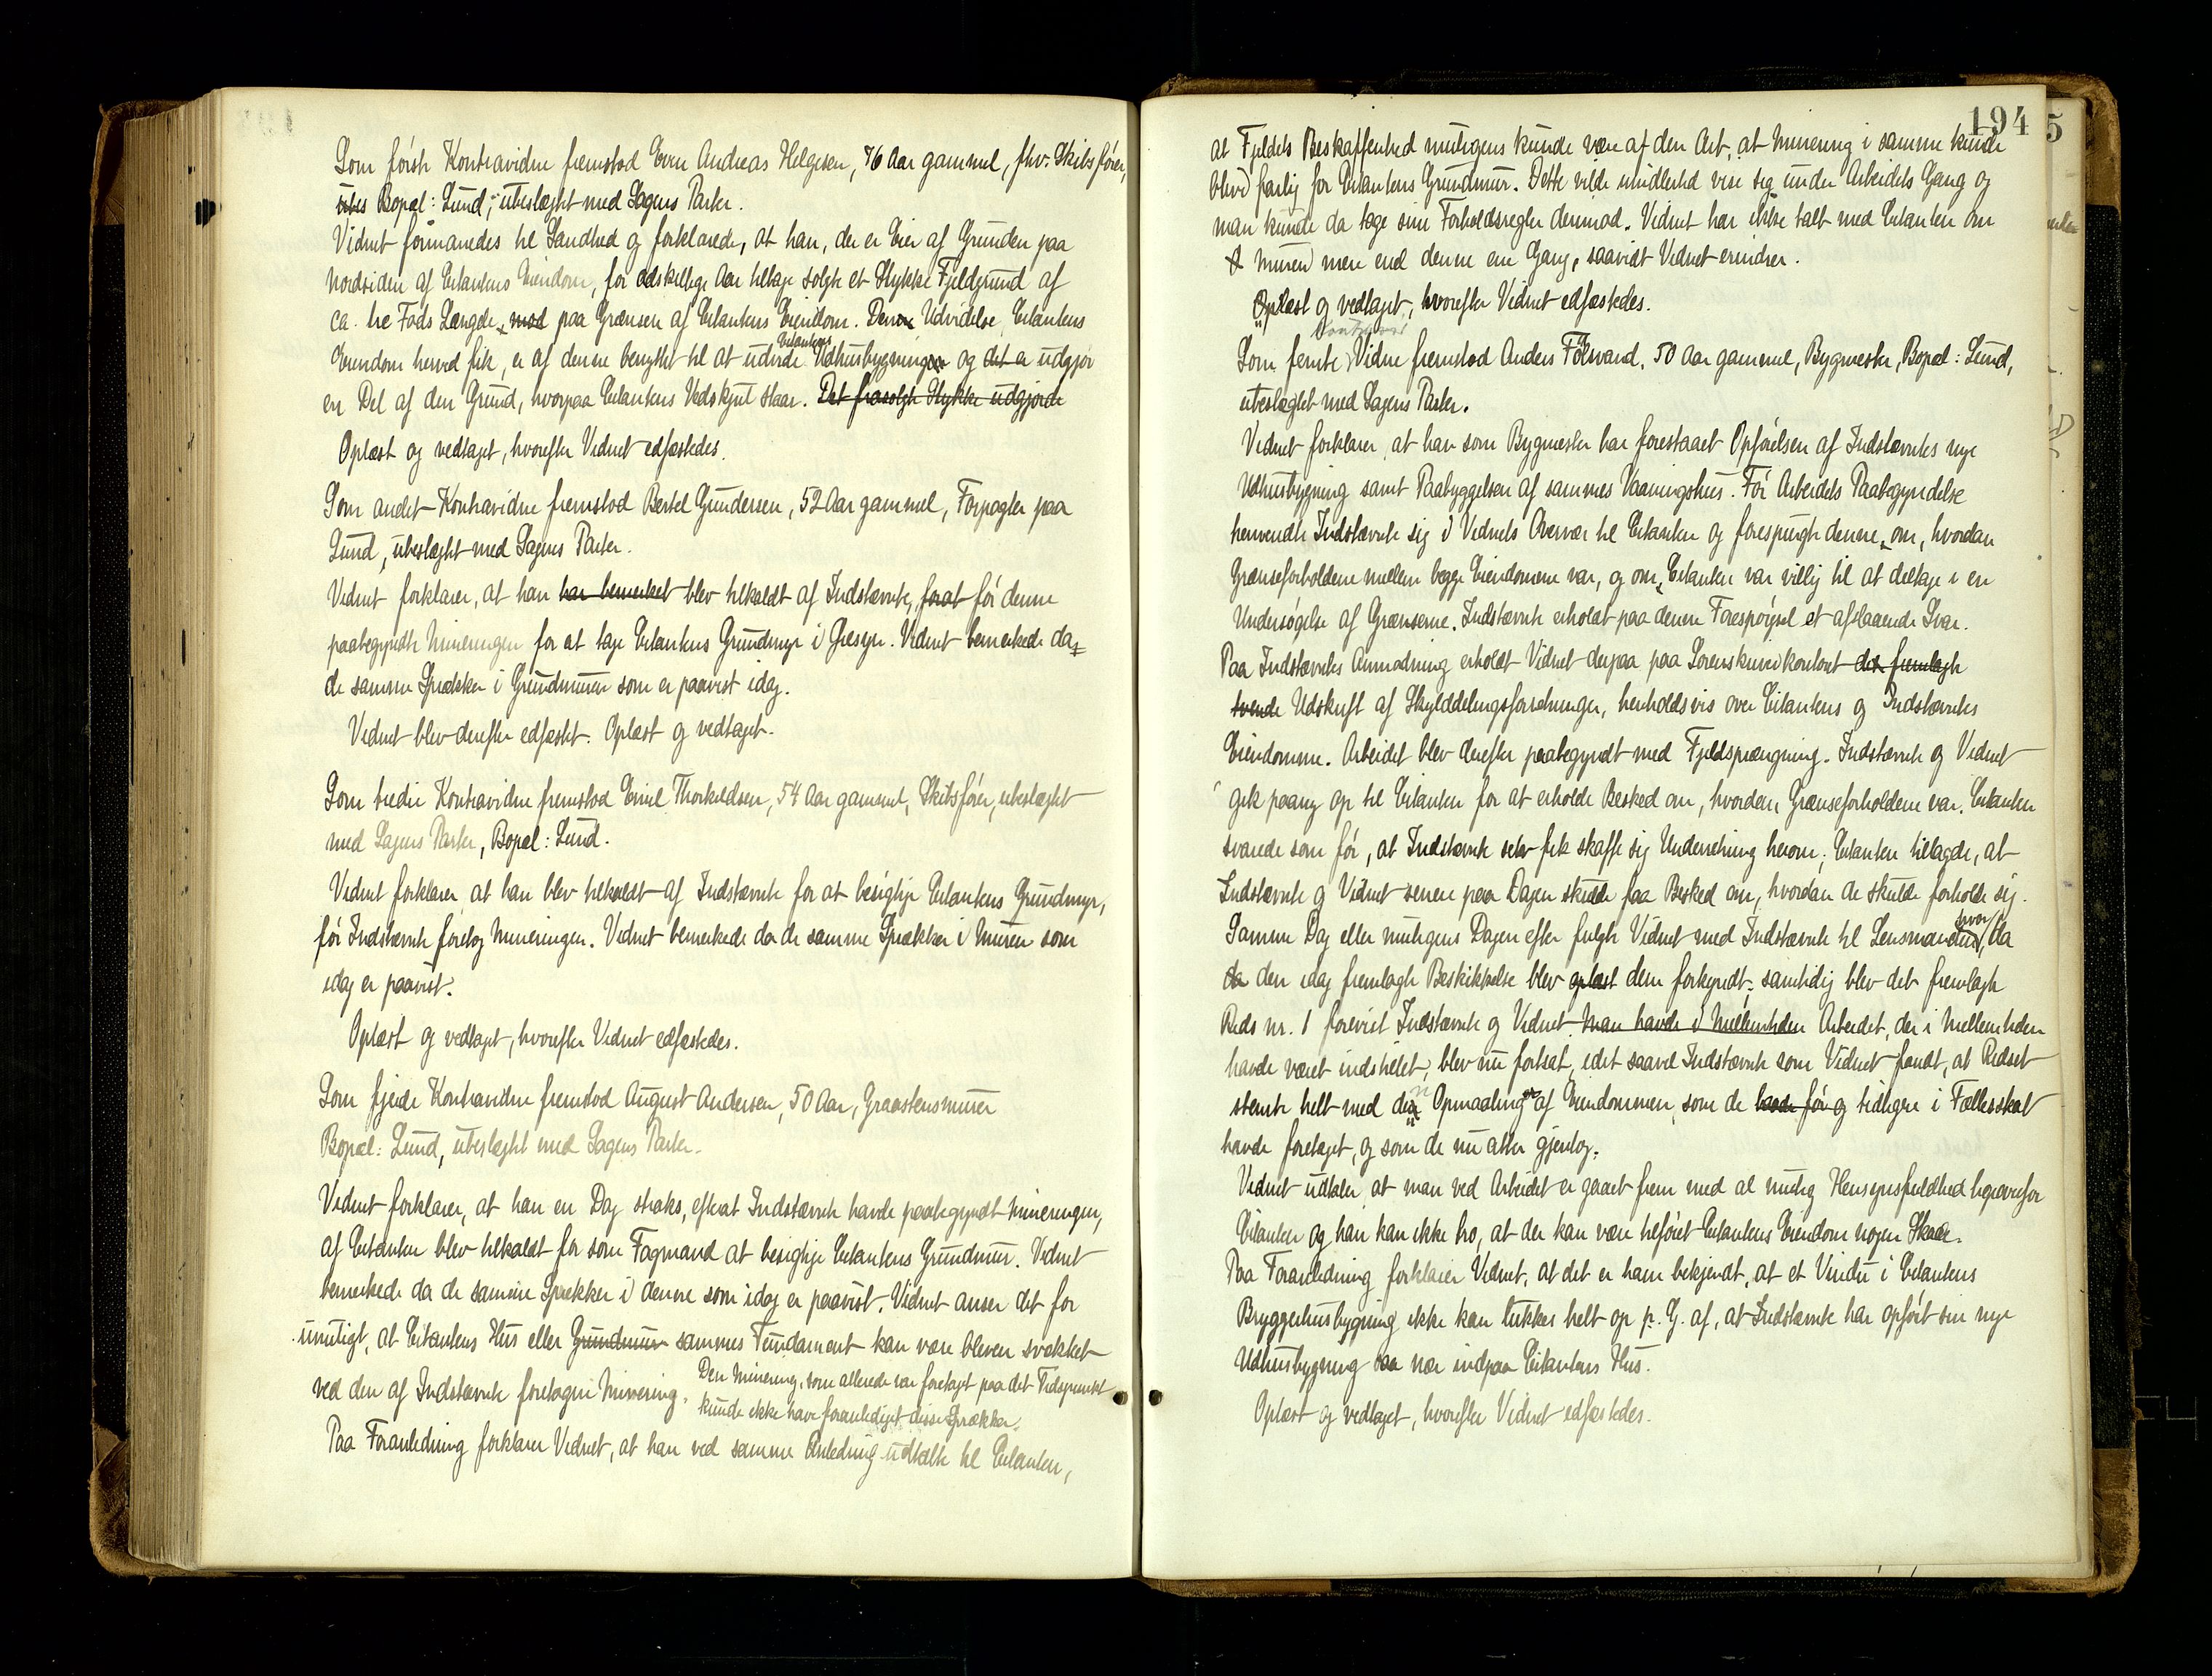 Som første Kontravidne fremstod Even Andreas Helgesen, 76 Aar gammel, fhv. Skibsfører,
ubes Bopæl: Lund, ubeslægtet med Sagens Parter.
Vidnet formanedes til Sandhed og forklarede, at han, der er Eier af Grunden paa
Nordsiden af Citantens Eiendom, for adskillige Aar tilbage solgte et Stykke Fjeldgrund af
ca. tre Fods Længde, mod paa Grænsen af Citantens Eiendom. Denne Udvidelse, Citantens
Eiendom herved fik, er af denne benyttet til at udvide Citantens Udhusbygninger og det er udgjør
en Del af den Grund, hvorpaa Citantens Vedskjul staar. Det frasolgte Stykke udgjorde
Oplæst og vedtaget, hvorefter Vidnet edfæstedes.
Som andet Kontravidne fremstod Bertel Gundersen, 52 Aar gammel, Forpagter paa
Lund, ubeslægtet med Sagens Parter.
Vidnet forklarer, at han har bemerket blev tilkaldt af Indstævnte, forat før denne
paabegyndte Mineringen for at tage Citantens Grundmur i Øiesyn. Vidnet bemerkede da
de samme Sprækker i Grundmuren som er paavist idag.
Vidnet blev derefter edfæstet. Oplæst og vedtaget.
Som tredie Kontravidne fremstod Emil Thorkildsen, 54 Aar gammel, Skibsfører, ubeslægtet
med Sagens Parter, Bopæl: Lund.
Vidnet forklarer at han blev tilkaldt af Indstævnte for at besigtige Citantens Grundmur,
før Indstævnte foretog Mineringen. Vidnet bemerkede da de samme Sprækker i Muren som
idag er paavist.
Oplæst og vedtaget, hvorefter Vidnet edfæstedes.
Som fjerde Kontravidne fremstod August Andersen, 50 Aar, Graastensmurer
Bopæl: Lund, ubeslægtet med Sagens Parter.
Vidnet forklarer, at han en Dag straks, efterat Indstævnte havde paabegyndt Mineringen,
af Citanten blev tilkaldt for som Fagmand at besigtige Citantens Grundmur. Vidnet
bemerkede da de samme Sprækker i denne som idag er paavist. Vidnet anser det for
umuligt, at Citantens Hus eller Grundmur sammes Fundament kan være bleven svækket
ved den af Indstævnte foretagne Minering. Den Minering, som allerede var foretaget paa det Tidspunkt
kunde ikke have foranlediget disse Sprækker.
Paa Foranledning forklarer Vidnet, at han ved samme Anledning udtalte til Citanten,
194
at Fjeldets Beskaffenhed muligens kunde være af den Art, at Minering i samme kunde
blive farlig for Citantens Grundmur. Dette vilde imidlertid vise sig under Arbeidets Gang og
man kunde da tage sine Forholdsregler derimod. Vidnet har ikke talt med Citanten om
Muren mere end denne ene Gang, saavidt Vidnet erindrer.
Oplæst og vedtaget, hvorefter Vidnet edfæstedes.
Som femte Kontra Vidne fremstod Anders, 50 Aar gammel, Bygmester, Bopæl: Lund,
ubeslægtet med Sagens Parter.
Vidnet forklarer, at han som Bygmester har forestaaet Opførelsen af Indstævntes nye
Udhusbygning samt Paabyggelsen af sammes Vaaningshus. Før Arbeidets Paabegyndelse
henvendte Indstævnte sig i Vidnets Overvær til Citanten og forespurgte denne, om, hvordan
Grænseforholdene mellem begge Eiendommene var, og om Citanten var villig til at deltage i en
Undersøgelse af Grænserne. Indstævnte erholdt paa denne Forespørgsel et afslaaende Svar.
Paa Indstævntes Anmodning erholdt Vidnet derpaa paa Sorenskriverkontoret det fremlagte
tvende Udskrift af Skylddelingsforretninger, henholdsvis over Citantens og Indstævntes
Eiendomme. Arbeidet blev derefter paabegyndt med Fjeldsprængning. Indstævnte og Vidnet
gik paany op til Citanten for at erholde Besked om, hvordan Grænseforholdene var. Citanten
svarede som før, at Indstævnte selv fik skaffe sig Underretning herom; Citanten tillagde, at
Indstævnte og Vidnet senere paa Dagen skulde faa Besked om, hvordan de skulde forholde sig.
Samme Dag eller muligens Dagen efter fulgte Vidnet med Indstævnte til Lensmanden, hvor da
da den idag fremlagte Beskikkelse blev oplæst dem forkyndt; samtidig blev det fremlagte
Rids nr. 1 forevist Indstævnte og Vidnet. Man havde i Mellemtiden Arbeidet, der i Mellemtiden
havde været indstillet, blev nu fortsat, idet saavel Indstævnte som Vidnet fandt, at Ridset
stemte helt med den Opmaaling af Eiendommen, som de havde før og tidligere i Fællesskab
havde foretaget, og som de nu atter gjentog.
Vidnet udtaler, at man ved Arbeidet er gaaet frem med al mulig Hensynsfuldhed ligeoverfor
Citanten og han kan ikke tro, at der kan være tilføiet Citantens Eiendom nogen Skade.
Paa Foranledning forklarer Vidnet, at det er ham bekjendt, at et Vindu i Citantens
Bryggerhusbygning ikke kan lukkes helt op p. G. af, at Indstævnte har opført sin nye
Udhusbygning saa nær indpaa Citantens Hus.
Oplæst og vedtaget, hvorefter Vidnet edfæstedes.